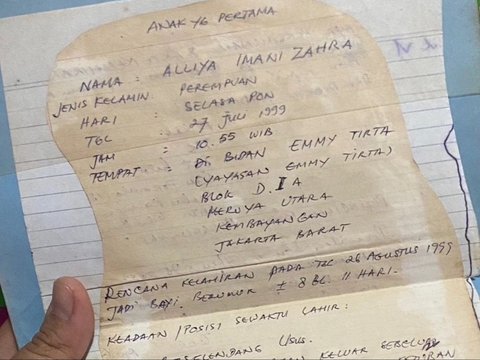 ANAK YG PERTAMA
NAMA : ALLIYA IMANI ZAHRA
JENIS KELAMIN : PEREMPUAN
HARI : SELASA PON
TGL : 27 JULI 1999
JAM : 10.55 WIB
TEMPAT : DI BIDAN EMMY TIRTA
(YAYASAN EMMY TIRTA)
BLOK D. I A
MERUYA UTARA
KEMBAYANGAN
JAKARTA BARAT
RENCANA KELAHIRAN PADA TGL 26 AGUSTUS 1999
JADI BAYI BERUMUR ± 8 BL. 11 HARI.
KEADAAN / POSISI SEWAKTU LAHIR :
USUS.
KELUAR SEBELUM